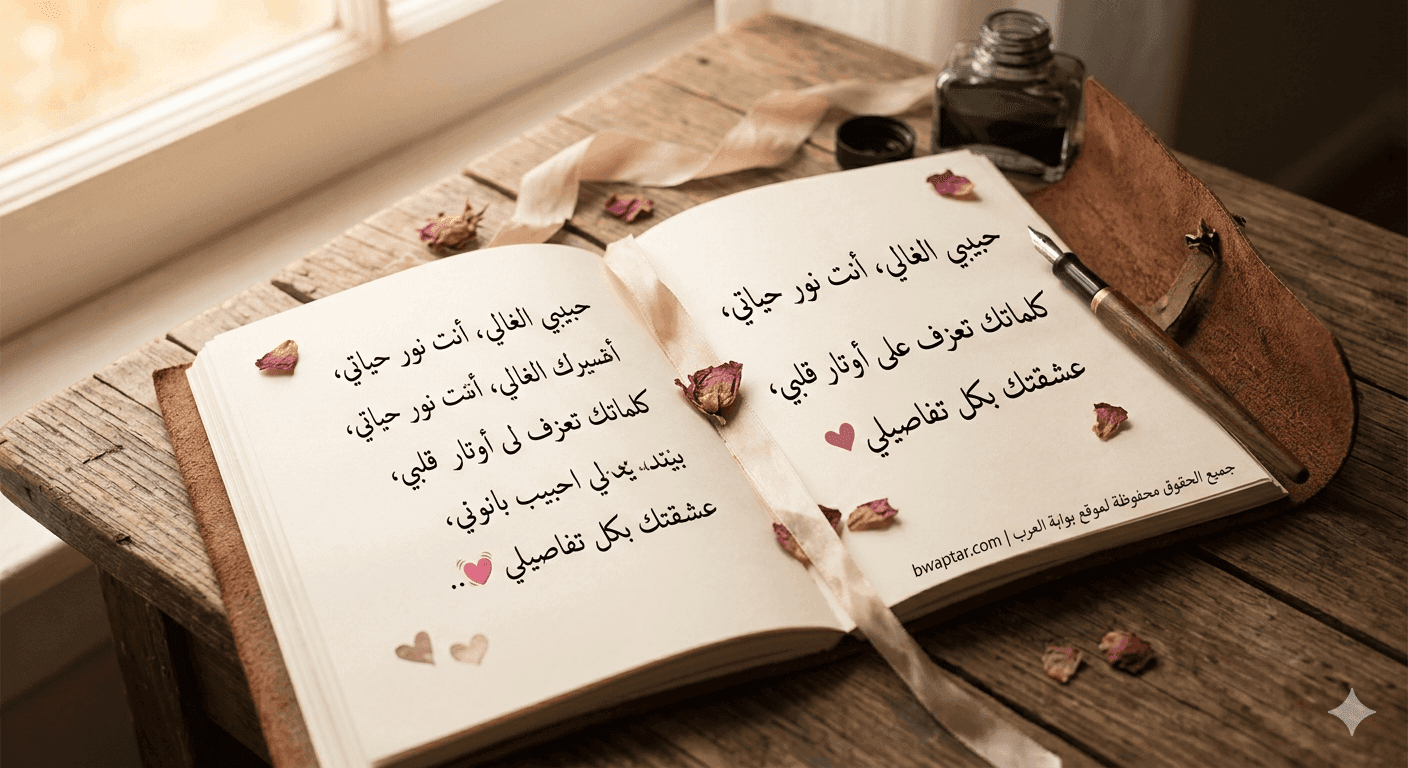 حبيبي الغالي، أنت نور حياتي،
كلماتك تعزف على أوتار قلبي،
عشقتك بكل تفاصيلي 💗
جميع الحقوق محفوظة لموقع بوابة العرب | bwaptar.com
حبيبي الغالي، أنت نور حياتي،
الغالي، أنت نور حياتي،
كلماتك تعزف لى أوتار قلبي،
احبيب بانوني،
عشقتك بكل تفاصيلي 💓..